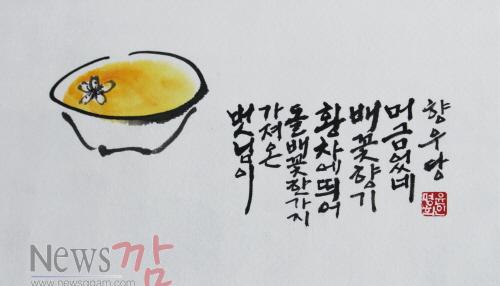 벗님이
가져온
돌배꽃한가지
황차에띄어
배꽃향기
머금었네
향우당
News깜
www.newsggam.com